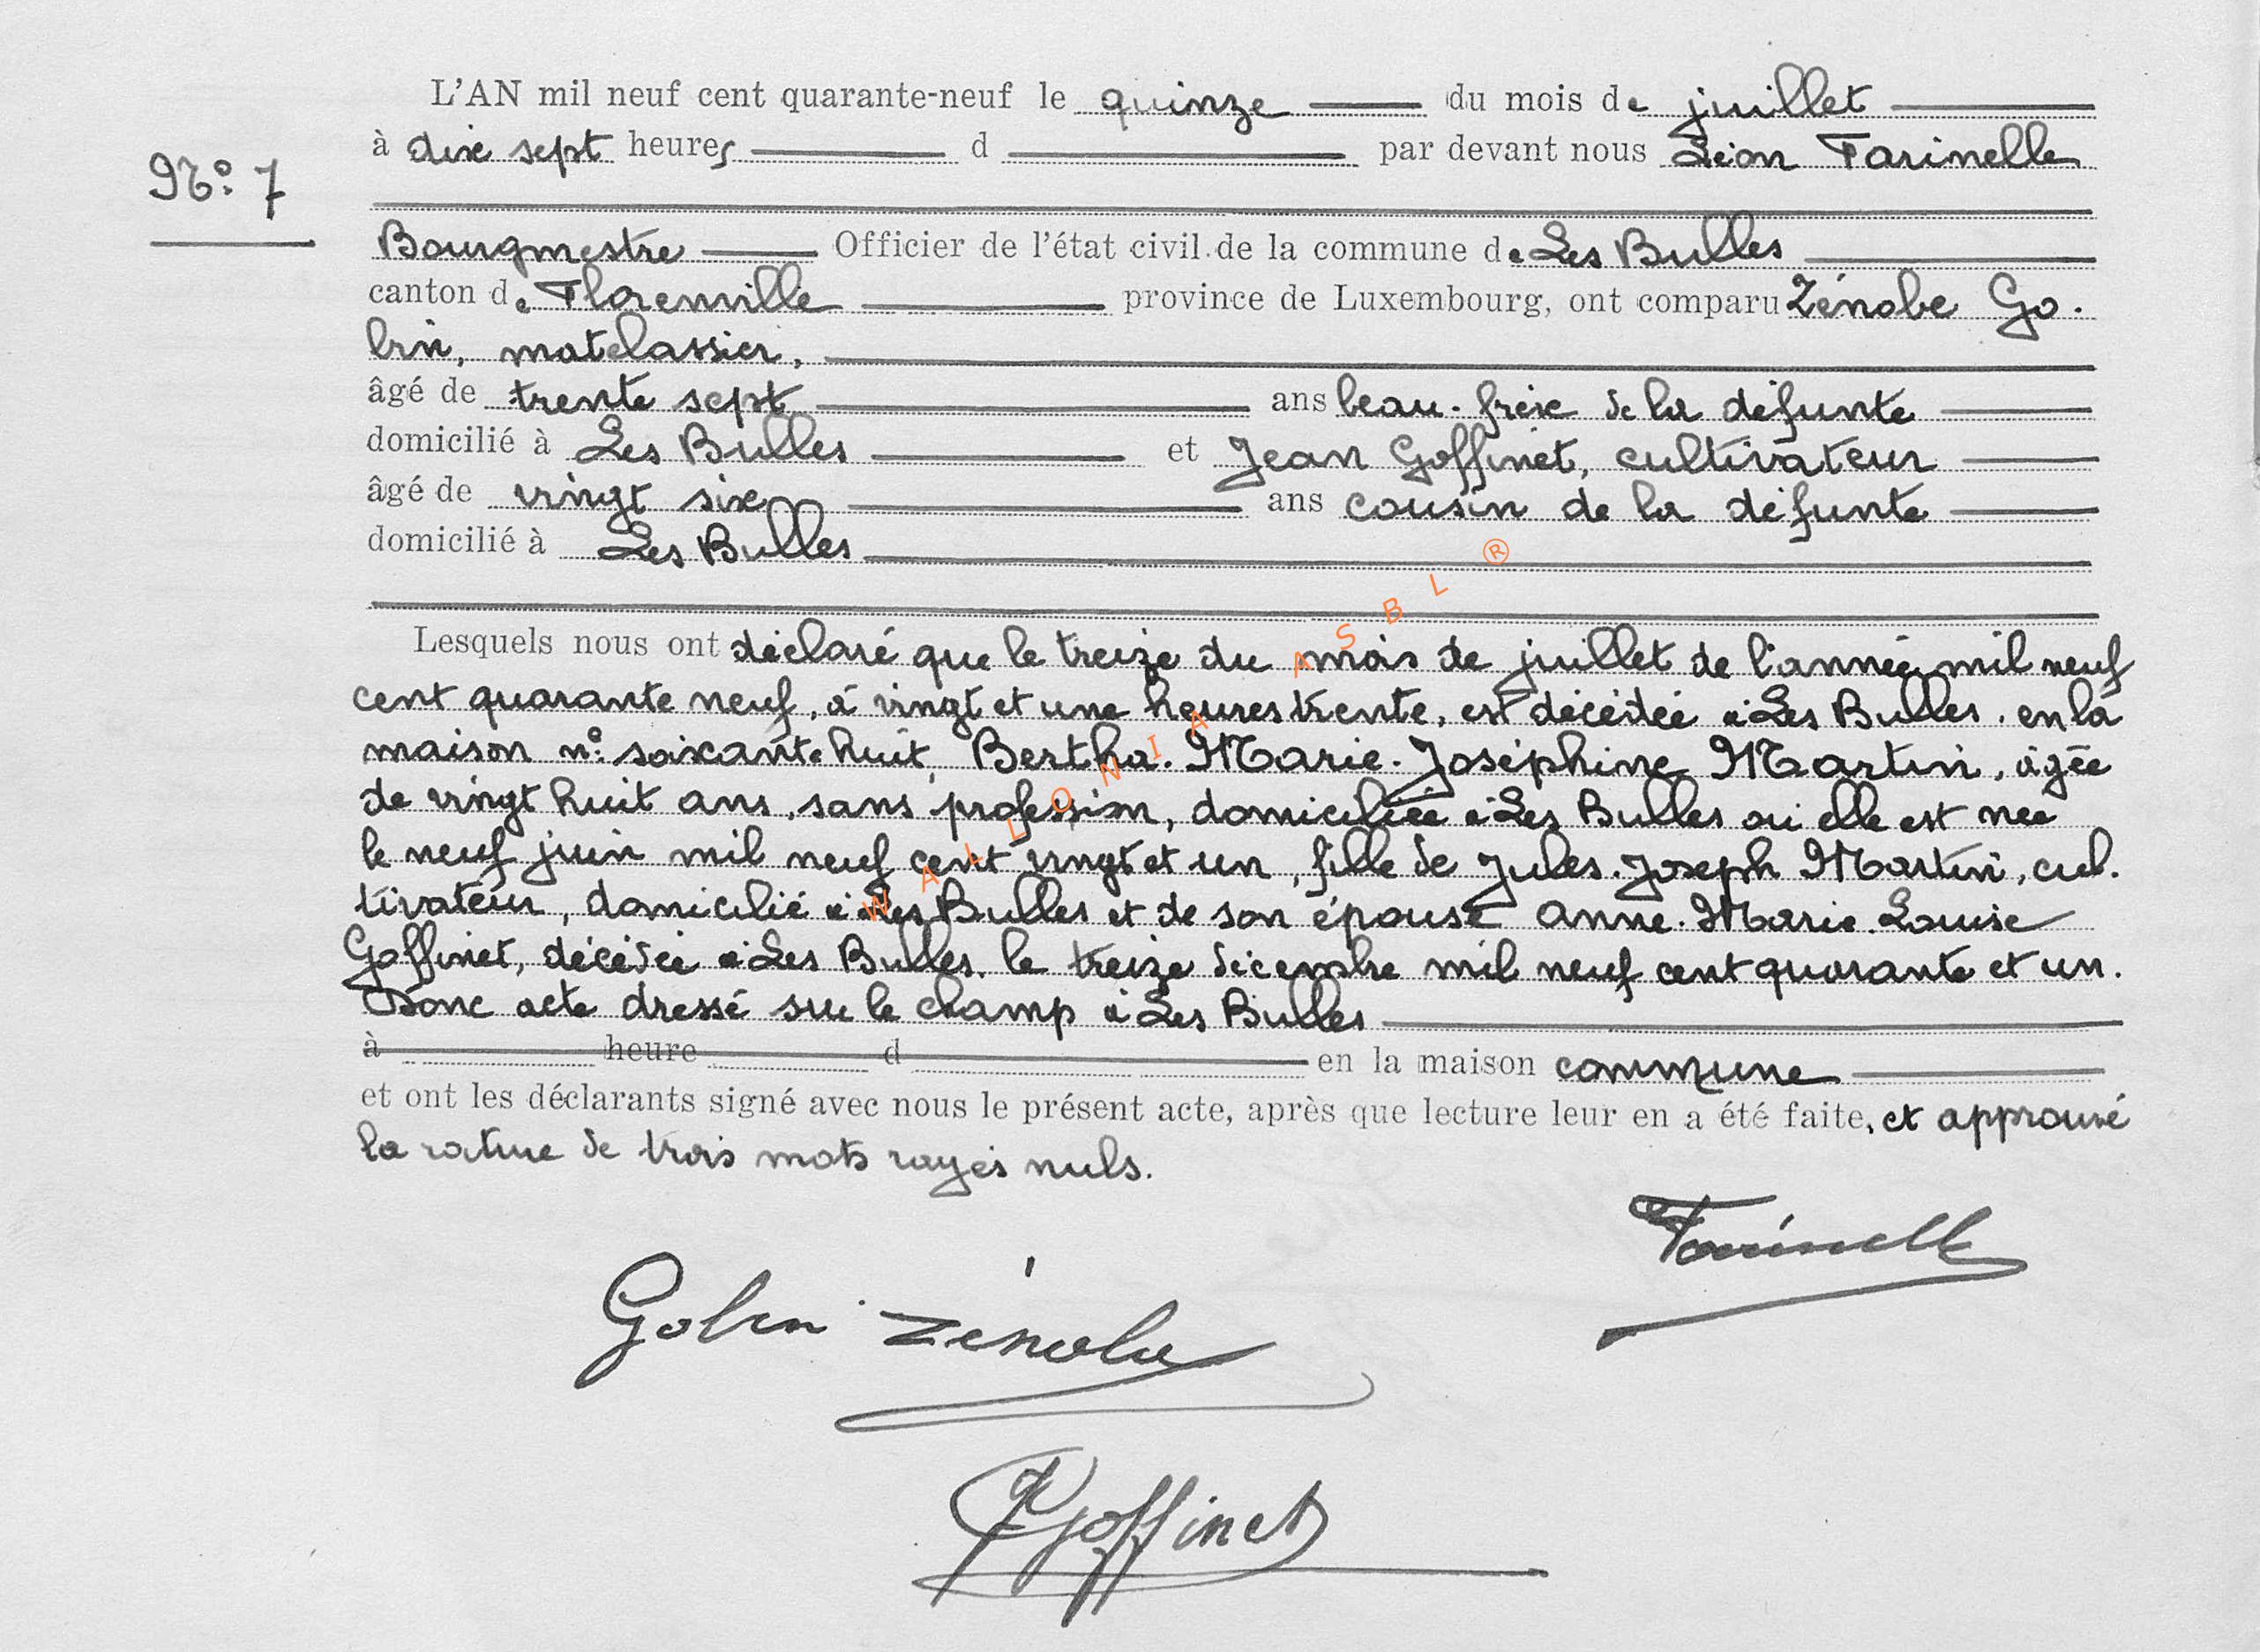 L'AN mil neuf cent quarante-neuf le quinze du mois de juillet
à dix sept heures d par devant nous Léon Farinelle
N°: 7
Bourgmestre Officier de l'état civil de la commune de Les Bulles
canton de Florenville province de Luxembourg, ont comparu Zénobe Go-
bin, matelassier,
âgé de trente sept ans beau-frère de la défunte
domicilié à Les Bulles et Jean Goffinet, cultivateur
âgé de vingt six ans cousin de la défunte
domicilié à Les Bulles
Lesquels nous ont déclaré que le treize du mois de juillet de l'année mil neuf
cent quarante neuf, à vingt et une heures trente, est décédée à Les Bulles, en la
maison n°: soixante huit, Bertha-Marie-Joséphine Martin, âgée
de vingt huit ans, sans profession, domiciliée à Les Bulles où elle est née
le neuf juin mil neuf cent vingt et un, fille de Jules-Joseph Martin, cul-
tivateur, domicilié à Les Bulles et de son épouse Anne-Marie-Louise
Goffinet, décédée à Les Bulles, le treize décembre mil neuf cent quarante et un.
Donc acte dressé sur le champ à Les Bulles
à heure d en la maison commune
et ont les déclarants signé avec nous le présent acte, après que lecture leur en a été faite, et approuvé
la rature de trois mots rayés nuls.
Farinelle
Gobin Zénobe
J Goffinet
WALLONIA ASBL ®